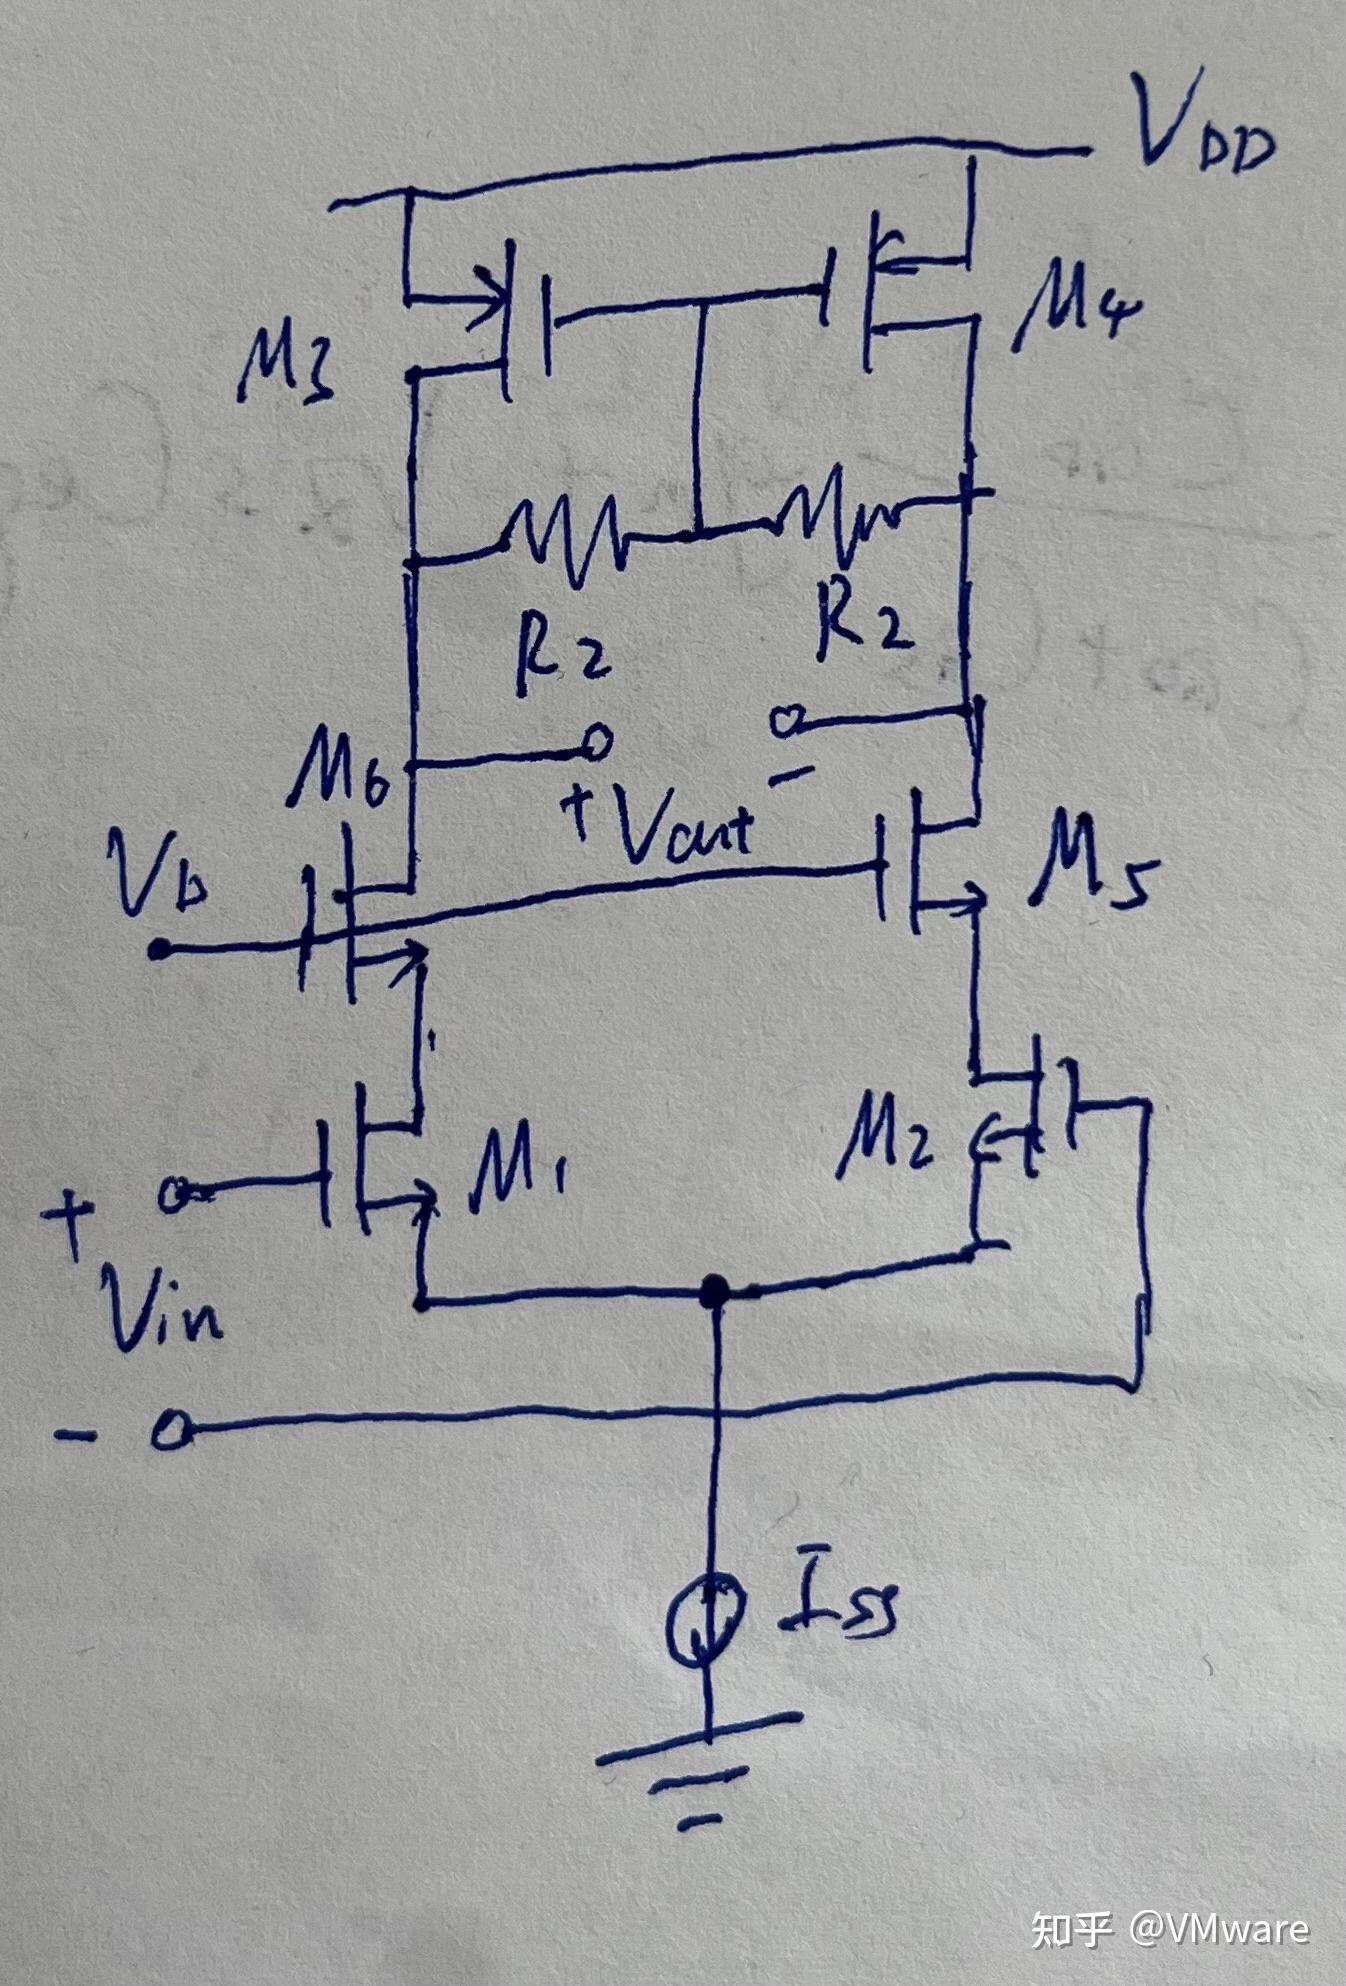 VDD
M3
M4
R2
R2
M6
-
+ Vout
Vb
M5
M1
M2
+
Vin
-
Iss
知乎 @VMware